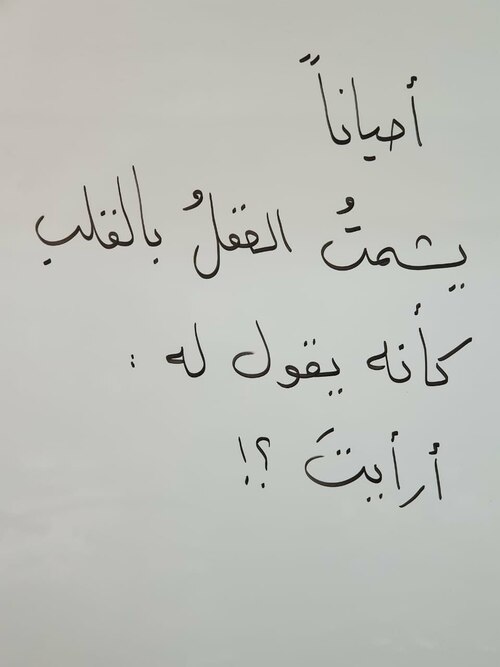 أحياناً
يشمتُ العقلُ بالقلب
كأنه يقول له :
أرأيتَ ؟!